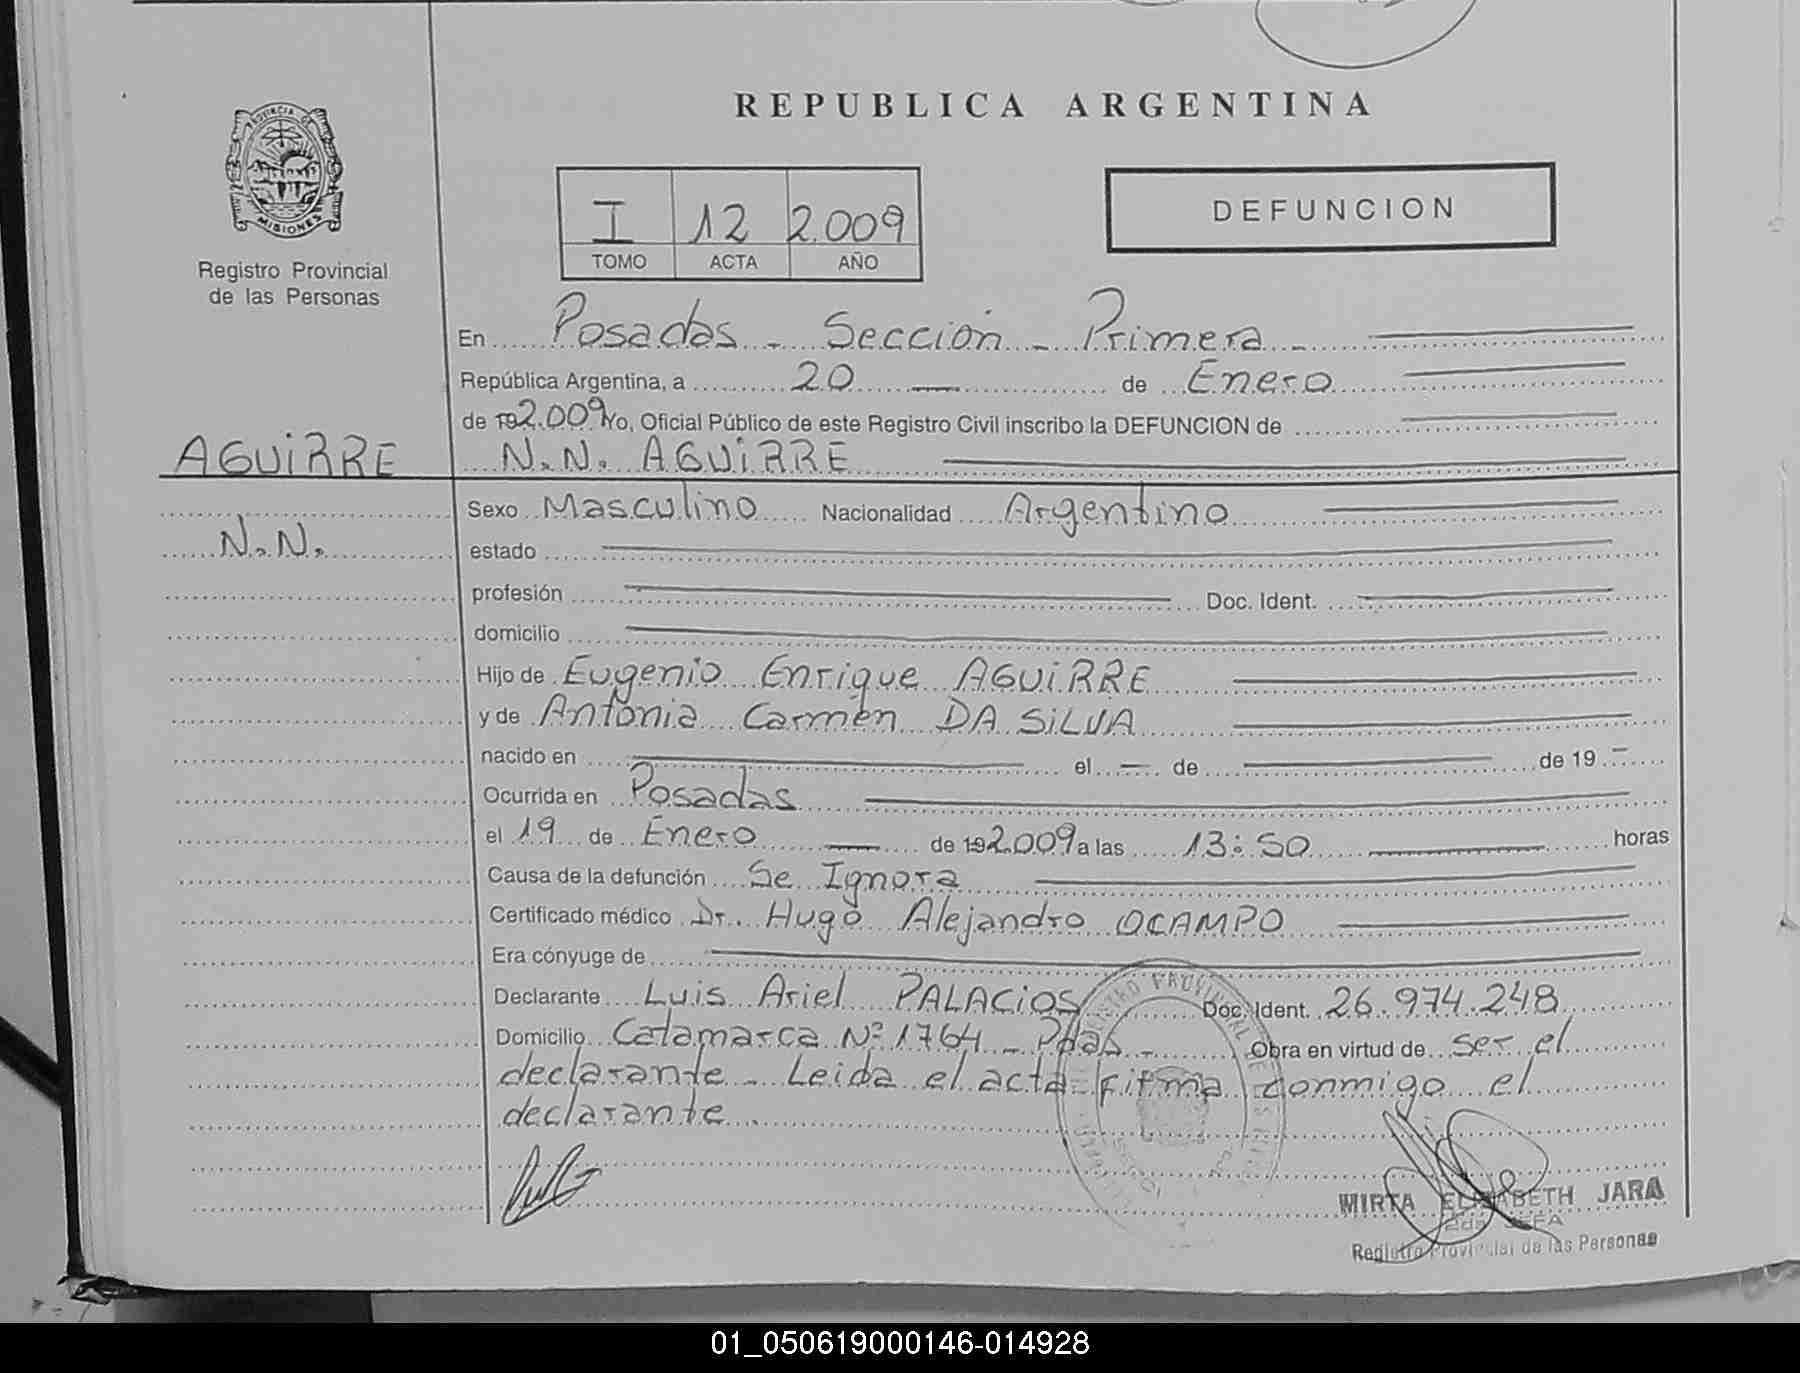 REPUBLICA ARGENTINA
PROVINCIA DE
MISIONES
Registro Provincial
de las Personas
I 12 2.009
TOMO ACTA AÑO
DEFUNCION
En Posadas - Sección - Primera -
República Argentina, a 20 — de Enero
de 192.009 Yo, Oficial Público de este Registro Civil inscribo la DEFUNCION de
AGUiRRE N.N. AGUiRRE
Sexo Masculino Nacionalidad Argentino
N.N. estado
profesión Doc. Ident.
domicilio
Hijo de Eugenio Enrique AGUiRRE
y de Antonia Carmen DA SiLVA
nacido en el — de de 19 -
Ocurrida en Posadas
el 19 de Enero — de 192.009 a las 13:50 horas
Causa de la defunción Se Ignora
Certificado médico Dr. Hugo Alejandro OCAMPO
Era cónyuge de
Declarante Luis Ariel PALACiOS Doc. Ident. 26.974.248
Domicilio Catamarca Nº 1764 - Pdas - Obra en virtud de ser el
declarante - Leida el acta firma conmigo el
declarante
MIRTA ELISABETH JARA
2da JEFA
Registro Provincial de las Personas
01_050619000146-014928